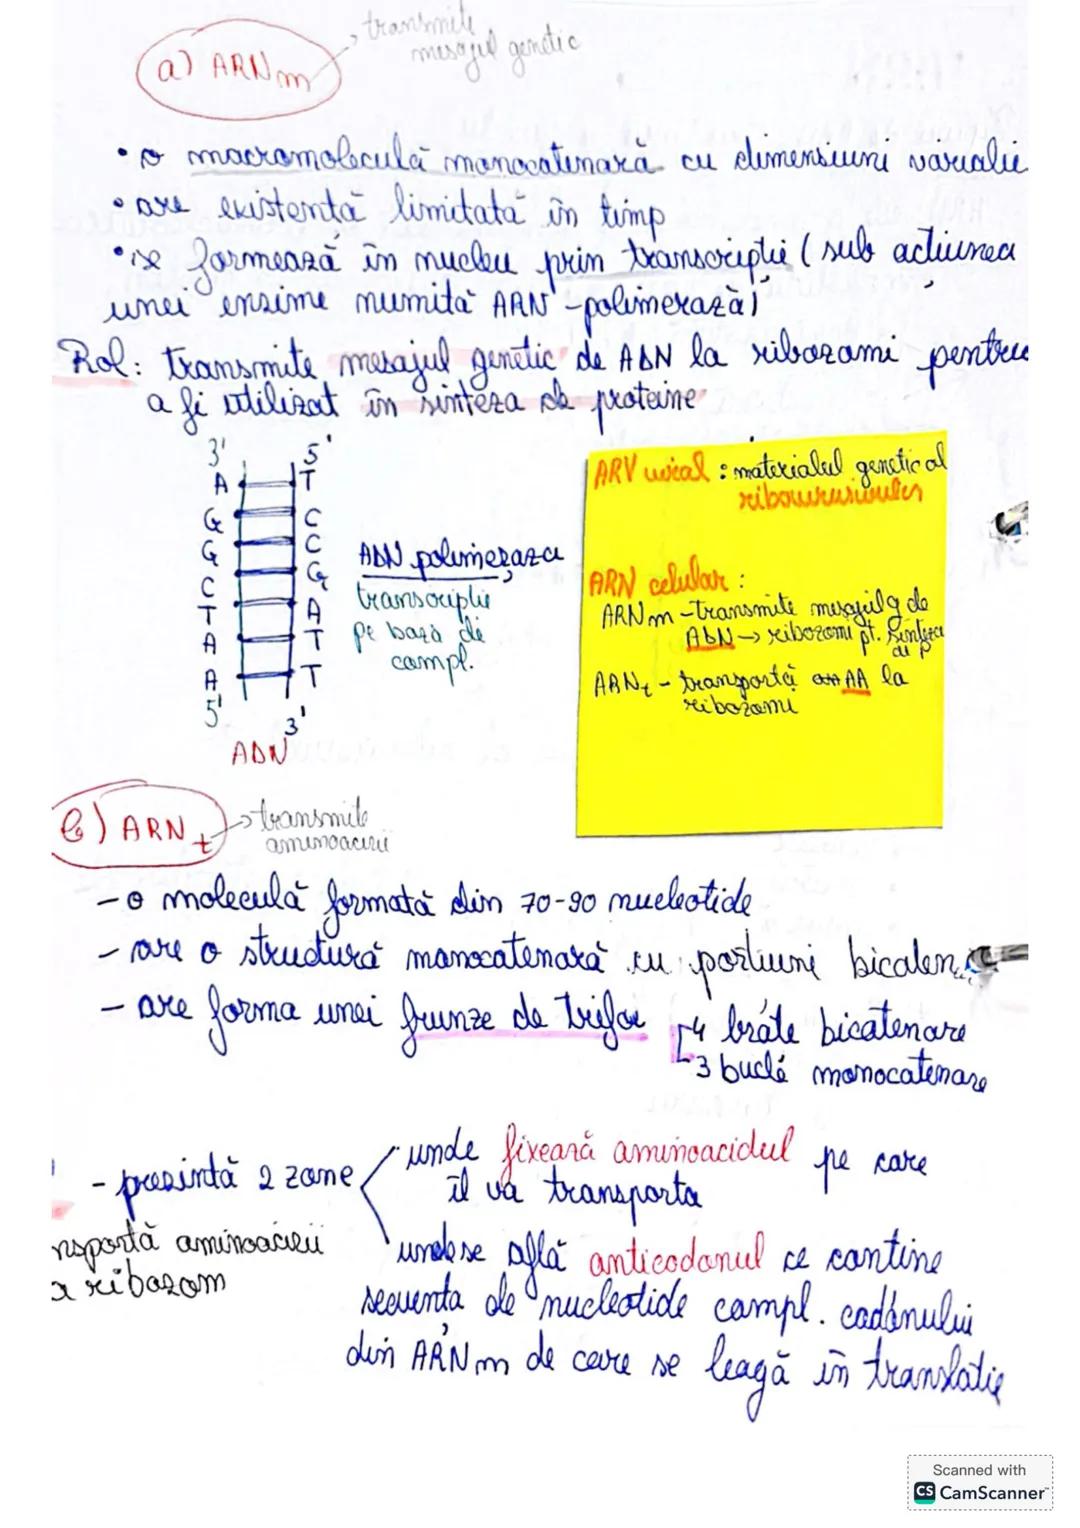 a) ARNm
transmite
mesajul genetic
• o macromoleculă monocatenară cu dimensiuni variabile
• are existență limitată în timp
• se formează în nucleu prin transcripție (sub acțiunea
unei enzime numită ARN-polimerază)
Rol: transmite mesajul genetic de ADN la ribozomi pentru
a fi utilizat în sinteza de proteine
3' 5'
A T
G C
G C
C G
T A
A T
A T
5' 3'
ADN
ADN polimeraza
transcripție
pe bază de
compl.
ARV viral: materialul genetic al
ribovirusurilor
ARN celular:
ARNm - transmite mesajul g de
ADN → ribozomi pt. sinteza
de p
ARNt - transportă AA la
ribozomi
b) ARNt
transmite
aminoacizii
- o moleculă formată din 70-90 nucleotide
- are o structură monocatenară cu porțiuni bicaten
- are forma unei frunze de trifoi
4 brațe bicatenare
3 bucle monocatenare
- prezintă 2 zone
unde fixează aminoacidul pe care
îl va transporta
nsportă aminoacizii
a ribozom
unde se află anticodonul ce conține
secvența de nucleotide compl. codonului
din ARNm de care se leagă în translație
Scanned with
CS CamScanner